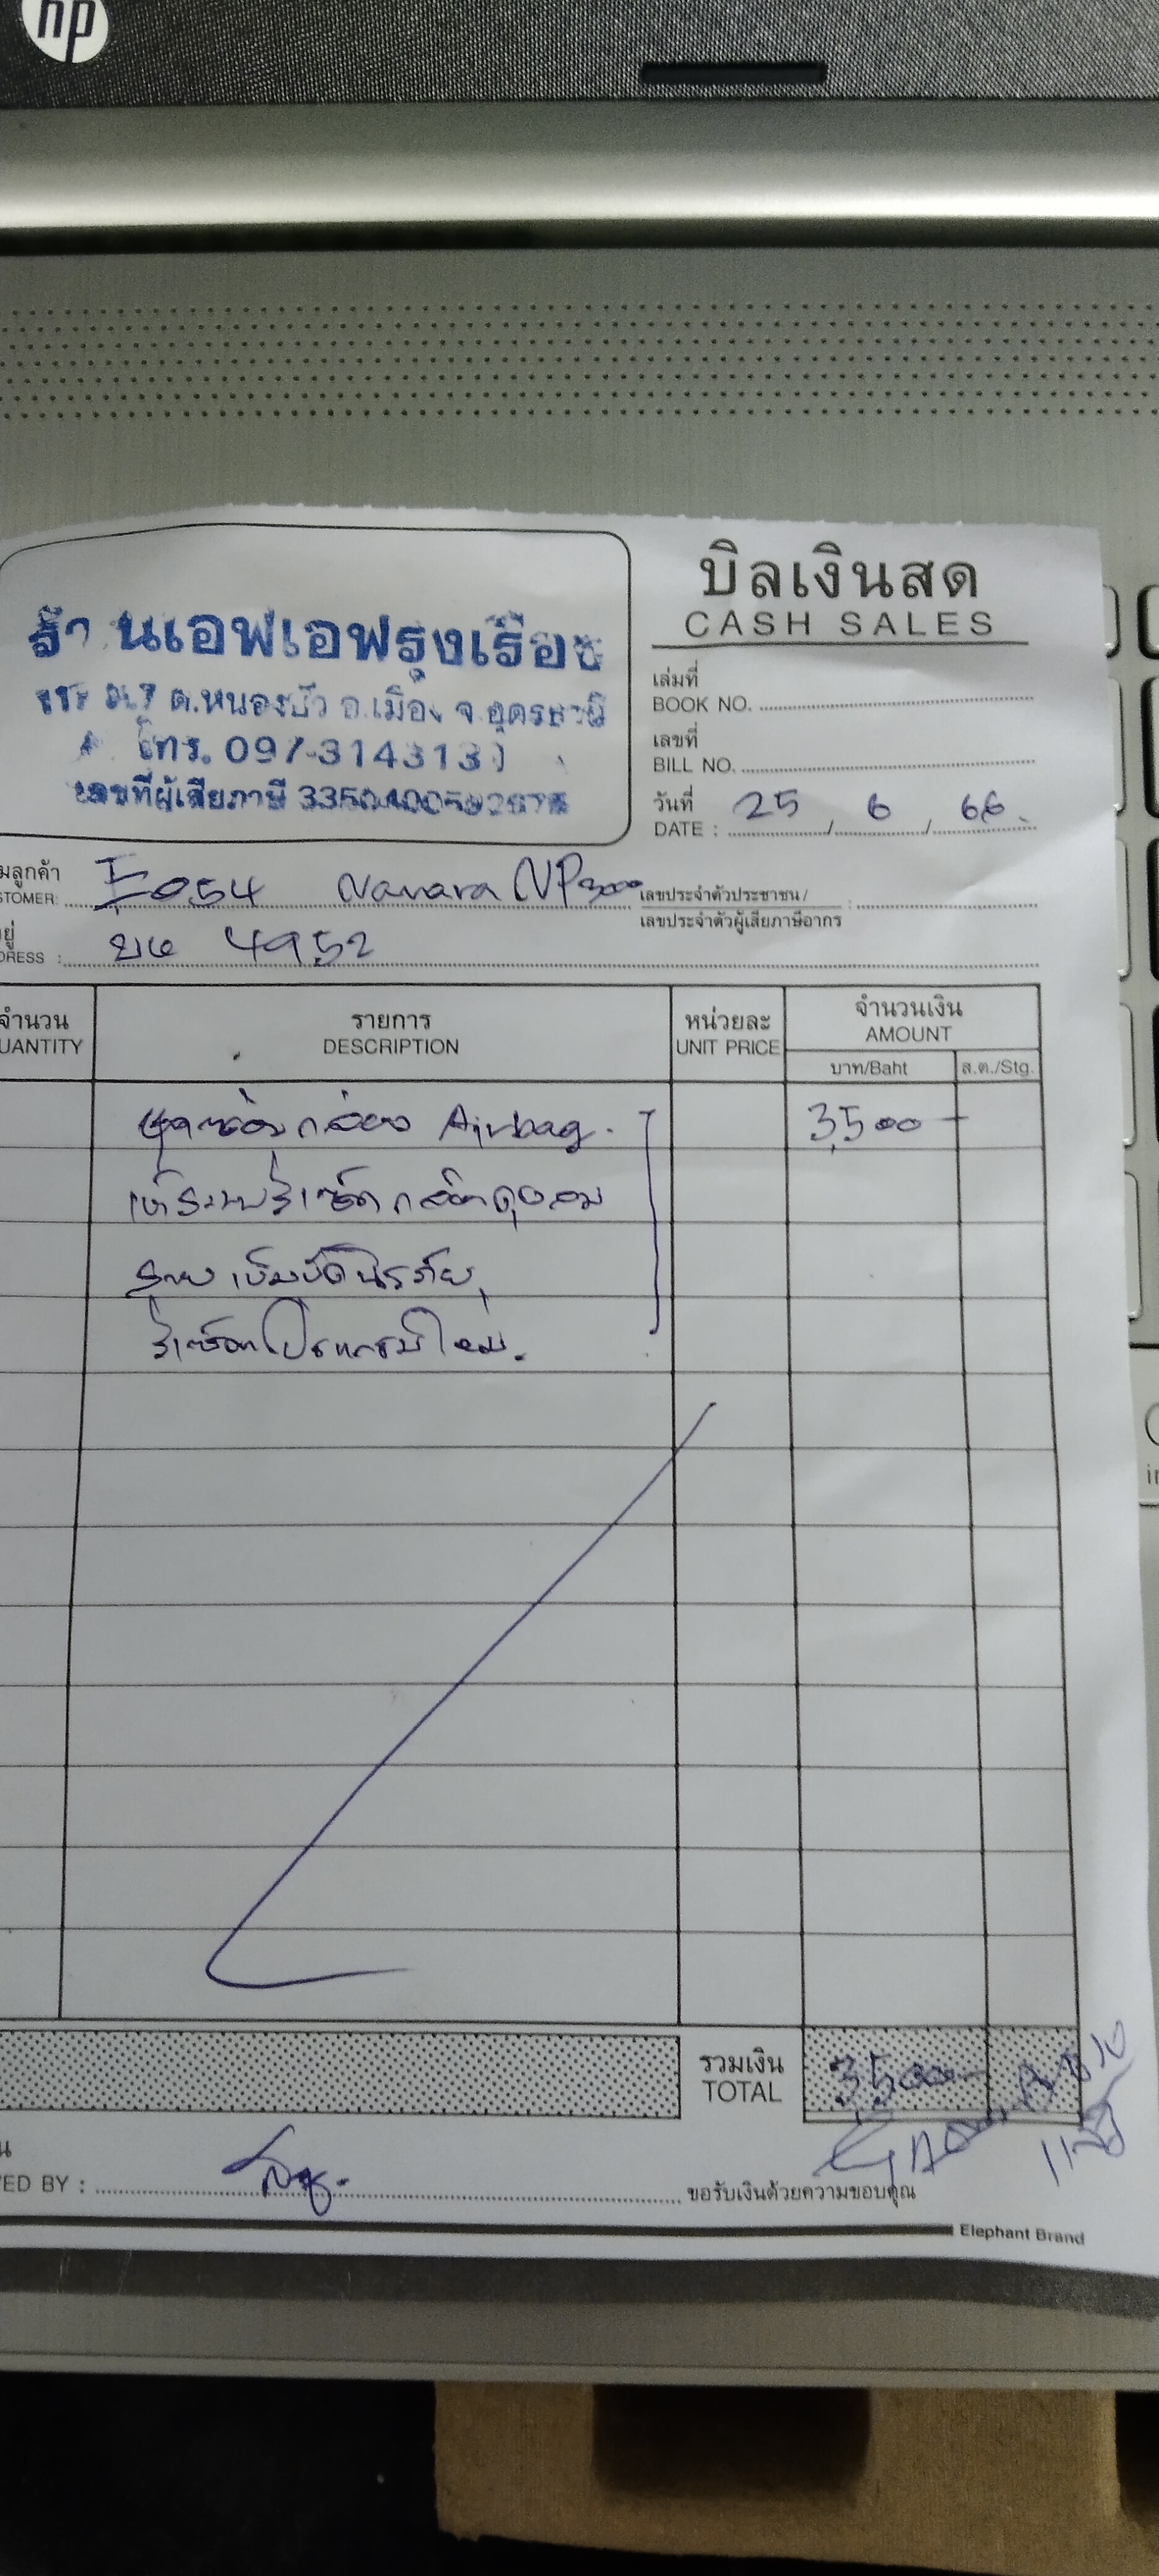 hp
บิลเงินสด
CASH SALES
ร้านเอฟเอฟรุ่งเรือง
ต.หนองบัว อ.เมือง จ.อุดรธานี
โทร. 097-3143131
เลขที่ผู้เสียภาษี
เล่มที่
BOOK NO.
เลขที่
BILL NO.
วันที่
DATE : 25 / 6 / 66
มลูกค้า
STOMER: 54 Navara NP300
เลขประจำตัวประชาชน/
เลขประจำตัวผู้เสียภาษีอากร :
ยู่
DRESS : 4952
จำนวน
UANTITY
รายการ
DESCRIPTION
หน่วยละ
UNIT PRICE
จำนวนเงิน
AMOUNT
บาท/Baht
ส.ต./Stg.
กล่อง Airbag. 3,500-
สายเข็มขัดนิรภัย
รีเซ็ตโปรแกรมใหม่.
รวมเงิน
TOTAL
3,500-
น
VED BY :
ขอรับเงินด้วยความขอบคุณ
Elephant Brand